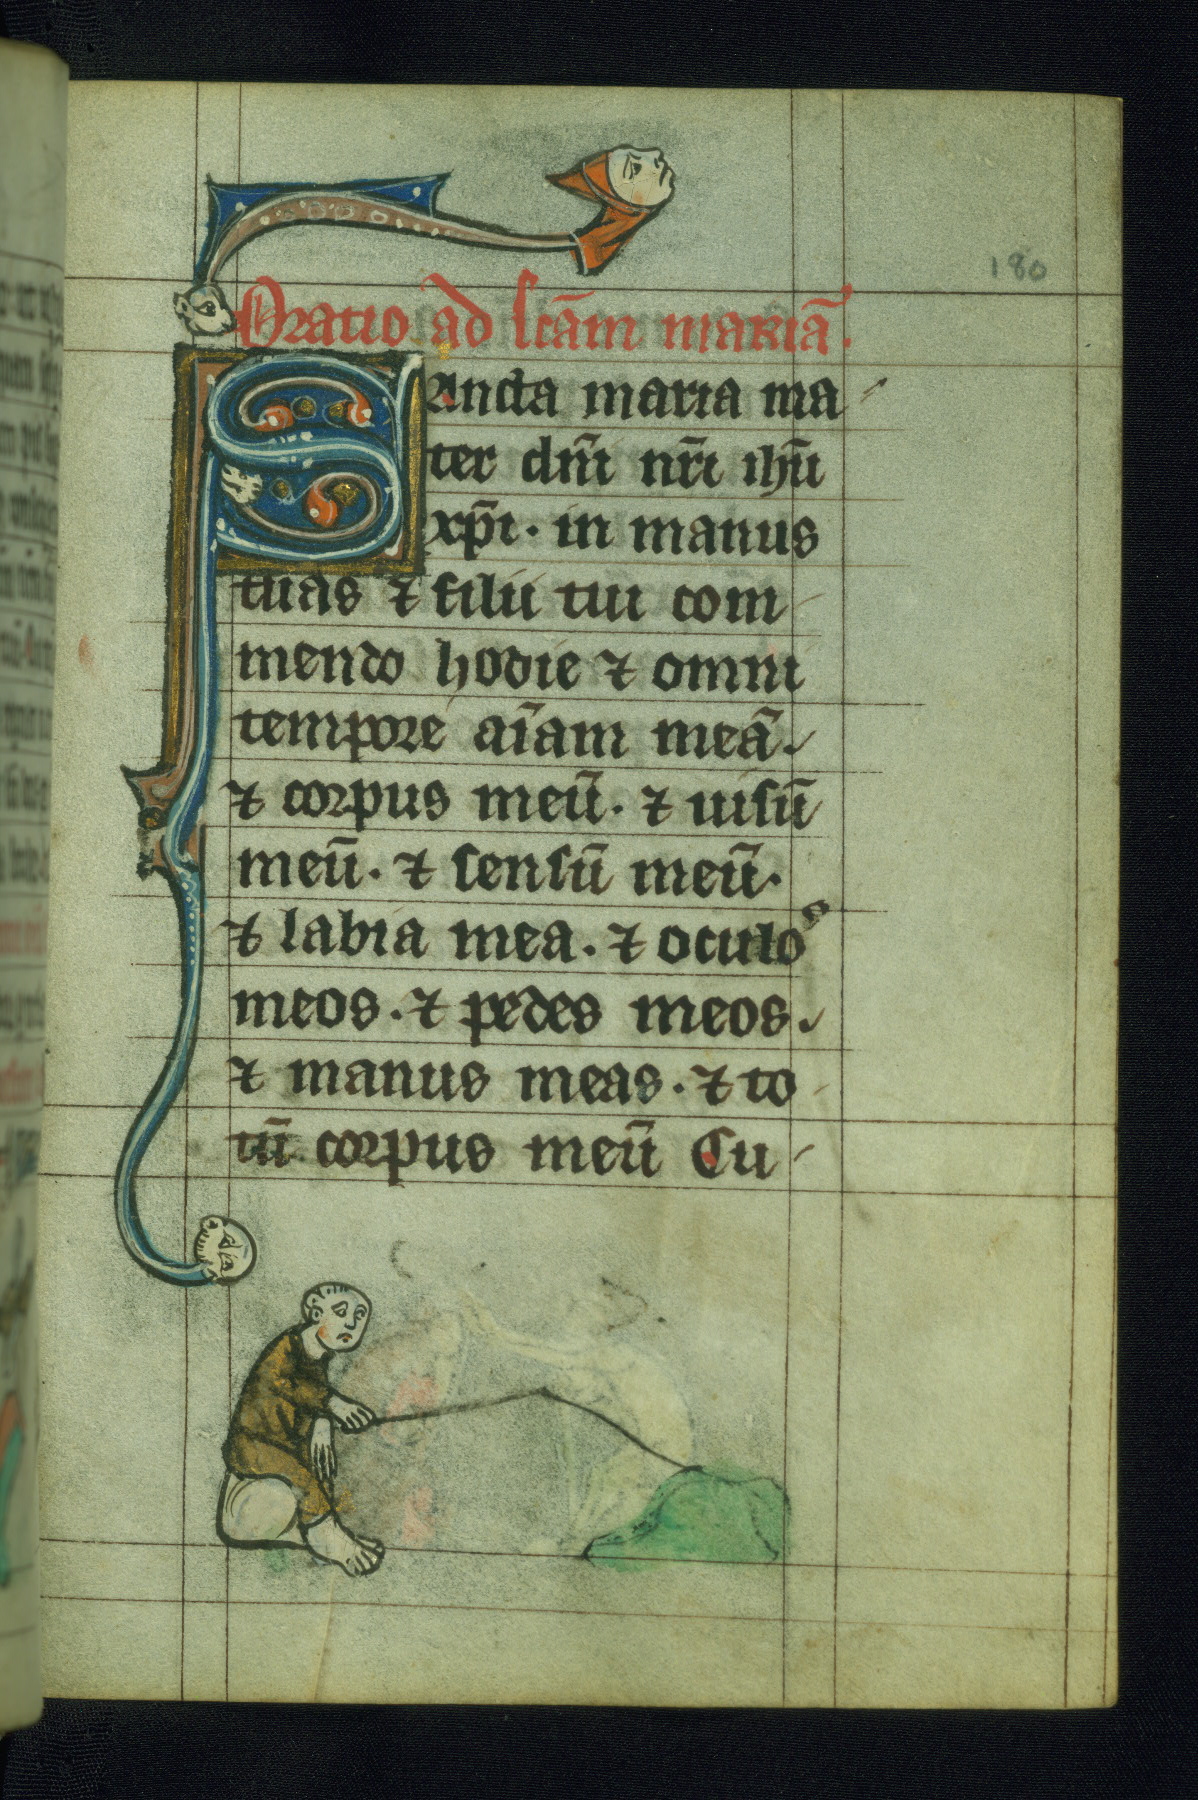 180
Oratio ad scām mariā.
Sancta maria ma
ter dn̄i nr̄i ihū
xp̄i. in manus
tuas ⁊ filii tui com
mendo hodie ⁊ omni
tempore aīam meā.
⁊ corpus meū. ⁊ uisū
meū. ⁊ sensū meū.
⁊ labia mea. ⁊ oculos
meos. ⁊ pedes meos.
⁊ manus meas. ⁊ to
tū corpus meū Cu